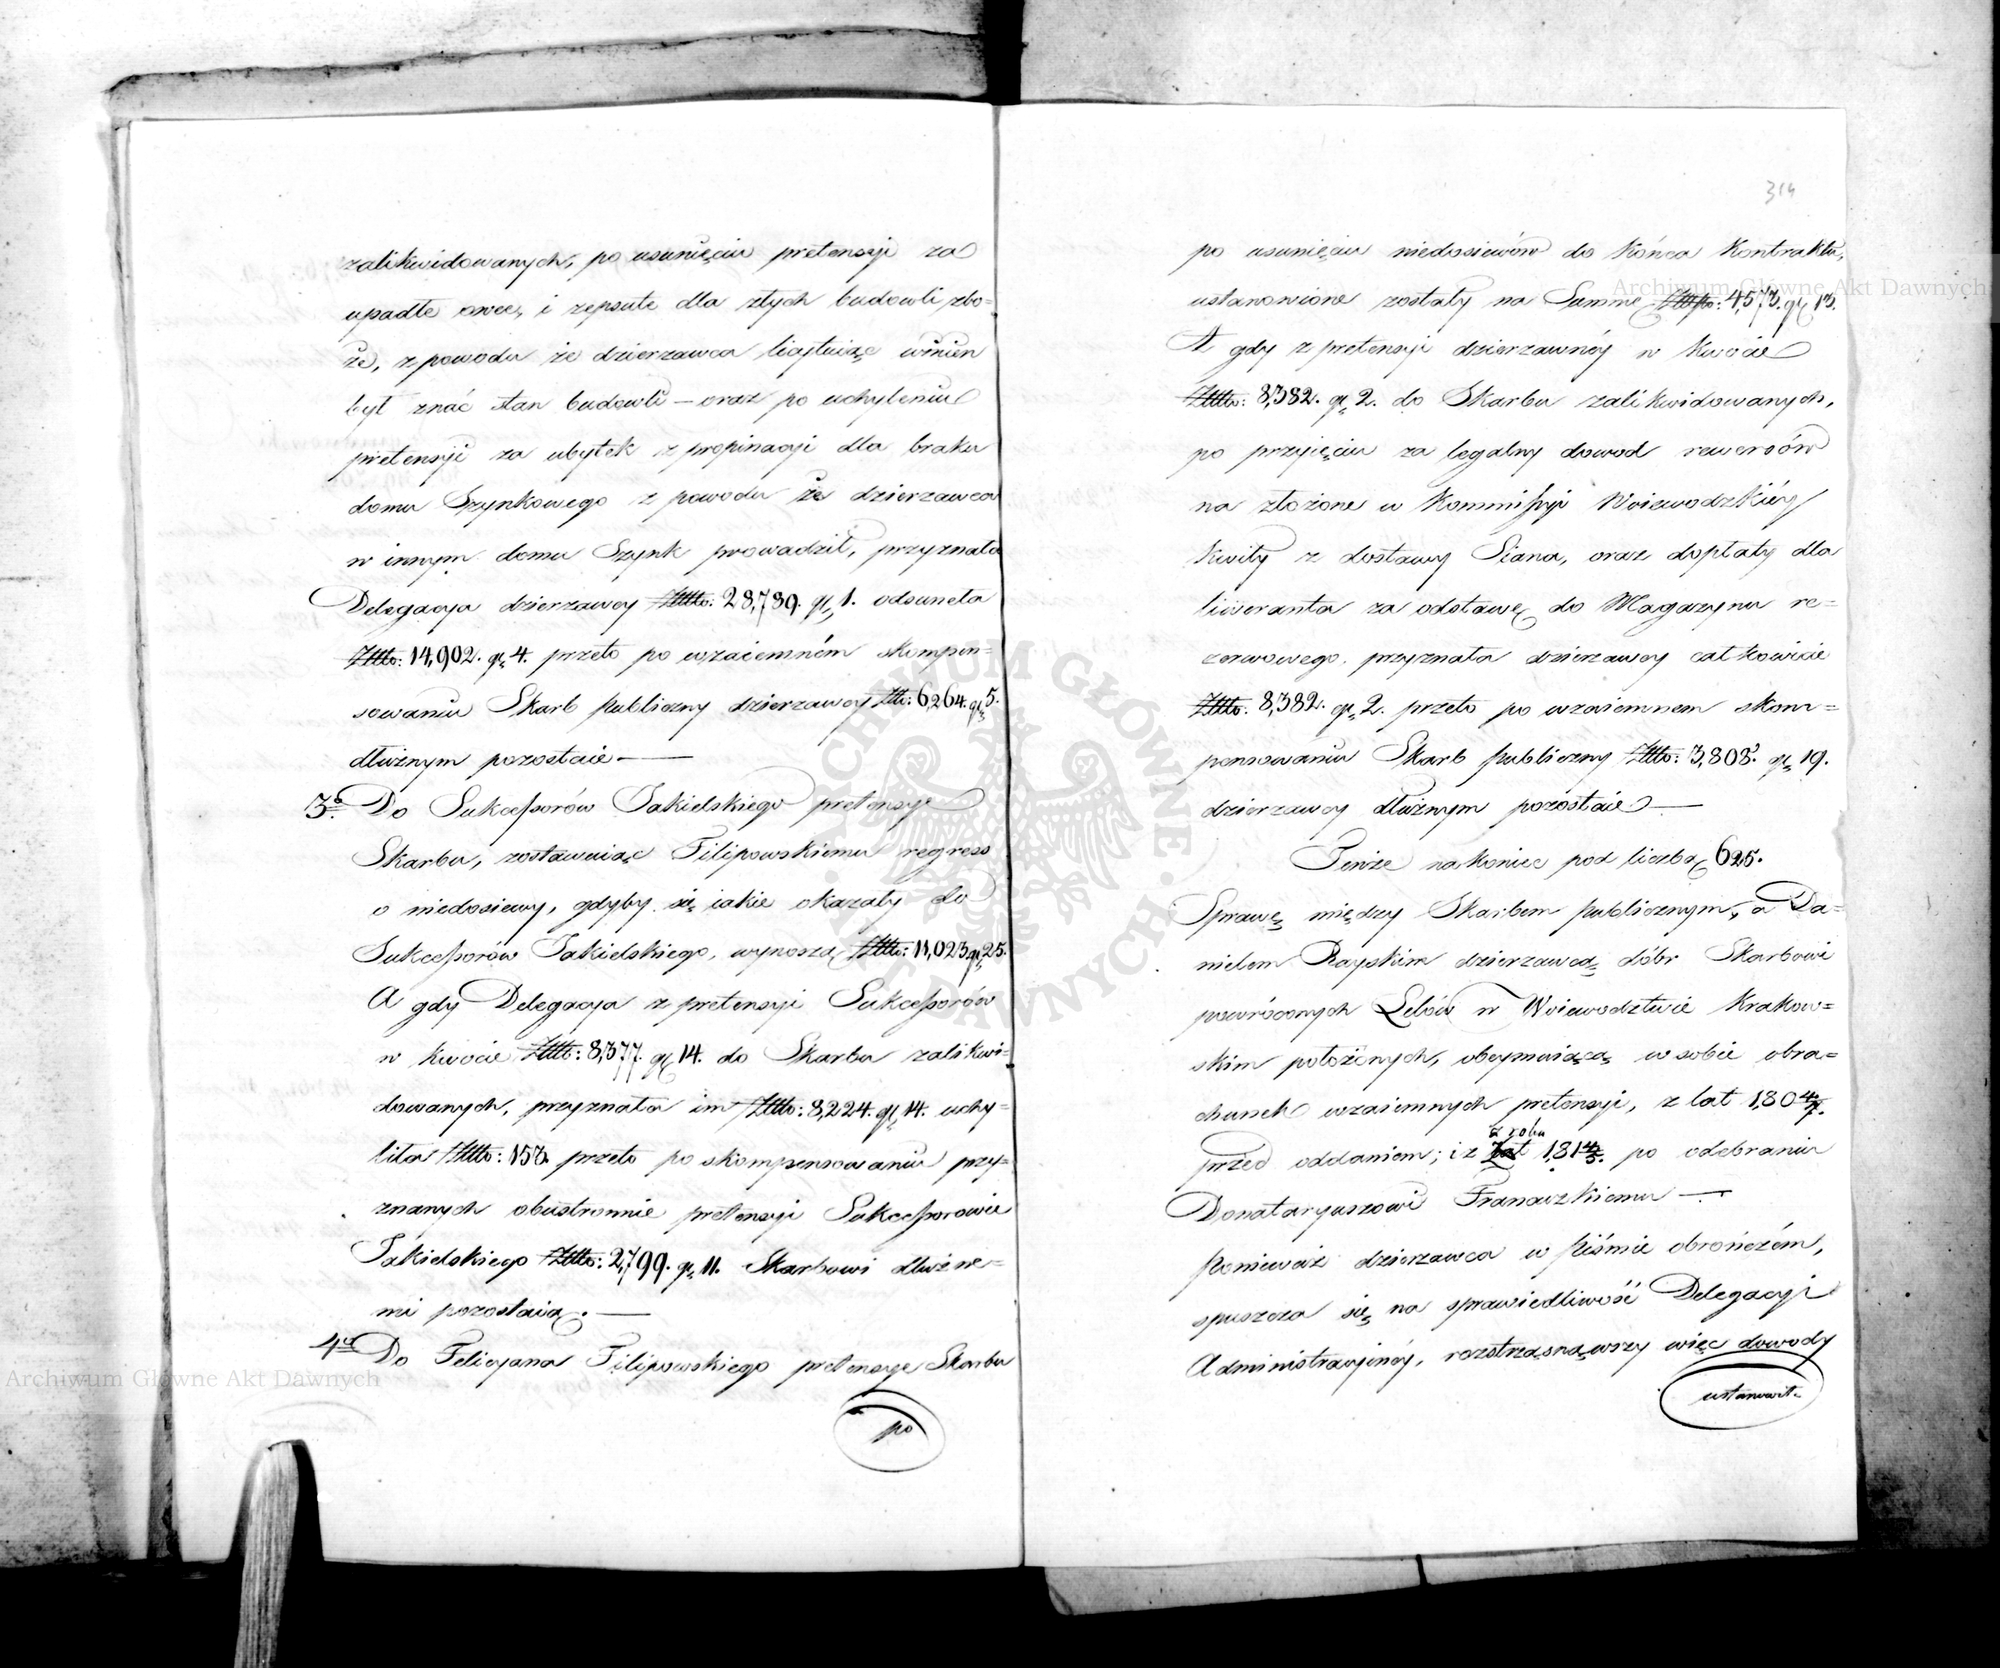 zalikwidowanych, po usunięciu pretensyi za
upadłe owce, i zepsute dla złych budowli zbo=
że, z powodu że dzierzawca licytuiąc winien
był znać stan budowli – oraz po uchyleniu
pretensyi za ubytek z propinacyi dla braku
domu Szynkowego z powodu że dzierzawca
w innym domu Szynk prowadził, przyznała
Delegacya dzierzawcy Złło: 28,789. gr. 1. odsuneła
Złło: 14,902. gr. 4. przeto po wzaiemném skompen=
sowaniu Skarb publiczny dzierzawcy Złło: 6,264. gr. 5.
dłużnym pozostaie. —
3. Do Sukcessorów Jakielskiego pretensye
Skarbu, zostawuiąc Filipowskiemu regress
o niedosiewy, gdyby się iakie okazały do
Sukcessorów Jakielskiego, wynoszą Złło: 11,023 gr. 25.
A gdy Delegacya z pretensyi Sukcessorów
w kwocie Złło: 8,377. gr. 14. do Skarbu zalikwi=
dowanych, przyznała im Złło: 8,224. gr. 14. uchy=
liła Złło: 153. przeto po skompensowaniu przy=
znanych obustronnie pretensyi Sukcessorowie
Jakielskiego Złło: 2,799. gr. 11. Skarbowi dłużne=
mi pozostaią. —
4. Do Felicyana Filipowskiego pretensye Skarbu
po
314
po usunięciu niedosiewów do końca Kontraktu,
ustanowione zostały na Summę Złło: 4,573. gr. 13.
A gdy z pretensyi dzierzawnéy w kwocie
Złło: 8,382. gr. 2. do Skarbu zalikwidowanych,
po przyięciu za legalny dowod rewersów
na złożone w Kommissyi Woiewodzkiéy
kwity z dostawy Siana, oraz dopłaty dla
liweranta za odstawę do Magazynu re=
zerwowego, przyznała dzierzawcy całkowicie
Złło: 8,382. gr. 2. przeto po wzaiemnem skom=
pensowaniu Skarb publiczny Złło: 3,808. gr. 19.
dzierzawcy dłużnym pozostaie —
Tenże nakoniec pod liczbą 625.
Sprawę między Skarbem publicznym, a Da=
nielem Rayskim dzierzawcą dóbr Skarbowi
powróconych Lelów w Woiewodztwie Krakow=
skim położonych, obeymuiącą w sobie obra=
chunek wzaiemnych pretensyi, z lat 1,80 4/7.
z roku
przed oddaniem; i z Lat 1,81 4/5. po odebraniu
Donataryuszowi Francuzkiemu —
Ponieważ dzierzawca w piśmie obrończém,
spuszcza się na sprawiedliwość Delegacyi
Administracyinéy, roztrząsnąwszy więc dowody
ustanowił.
Archiwum Główne Akt Dawnych
Archiwum Główne Akt Dawnych
ARCHIWUM GŁÓWNE AKT DAWNYCH